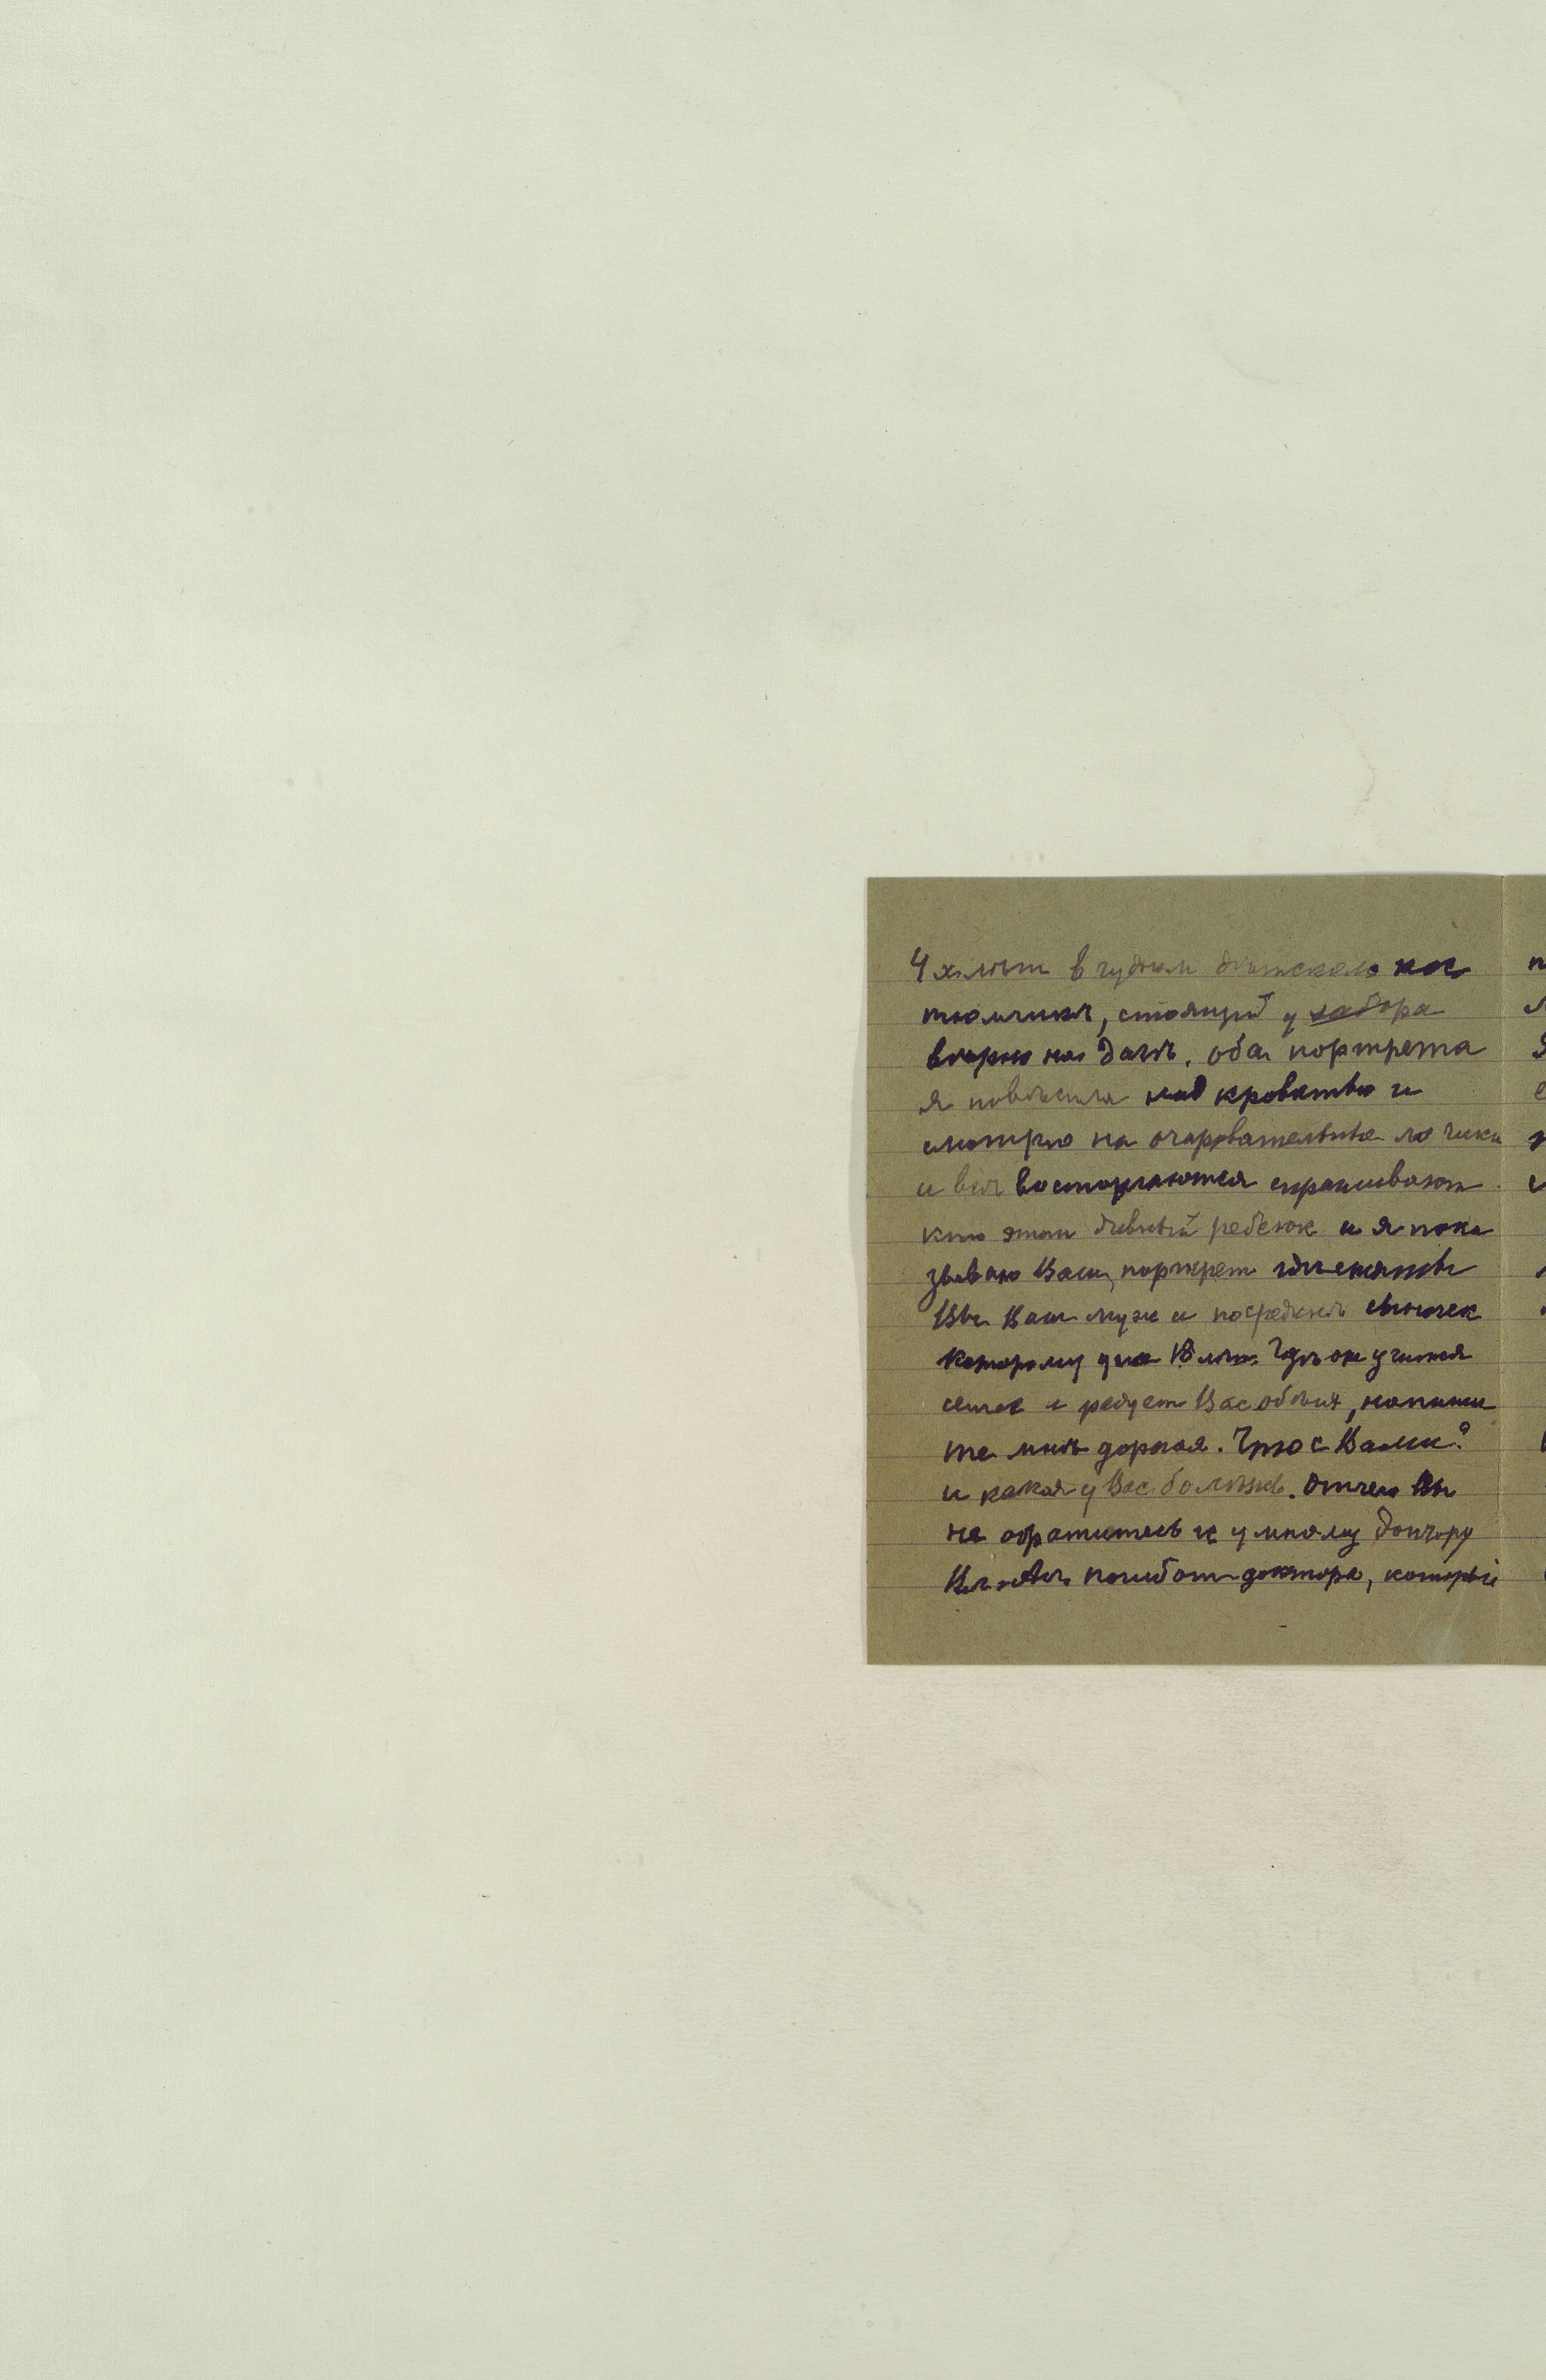 4х лѣт в чудном дѣтском кос
тюмчикѣ, стоящий у забора
вѣрно на дачѣ. оба портрета
я повѣсила над кроватью и
смотрю на очаровательные
и всѣ восторгаются спрашивают
кто этот дивный ребенок и я пока
зываю Ваш портрет гдѣ снято
Вы Ваш муж и посрединѣ сыночек
которому уже 18 лѣт. Гдѣ он учится
и радует Вас обоих, напиши
те мнѣ дорогая. Что с Вами?
и какая у Вас болѣзнь. отчего Вы
не обратитесь к умному доктору
доктора, который